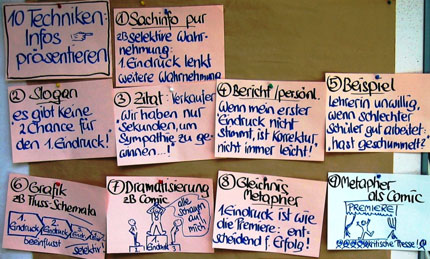 10 Techniken:
Infos
präsentieren
① Sachinfo pur
zB selektive Wahr-
nehmung:
1. Eindruck lenkt
weitere Wahrnehmung
② Slogan
es gibt keine
2. Chance für
den 1. Eindruck!
③ Zitat: Verkäufer
"Wir haben nur
Sekunden, um
Sympathie zu ge-
winnen...!"
④ Bericht/persönl.
Wenn mein erster
Eindruck nicht
stimmt, ist Korrektur
nicht immer leicht!
⑤ Beispiel
Lehrerin unwillig,
wenn schlechter
Schüler gut arbeitet:
"hast geschummelt?"
⑥ Grafik
zB Fluss-Schemata
1.
Eindruck
2.
Eindruck
beeinflusst
selektiv!
⑦ Dramatisierung
zB Comic
alle
schauen
auf
mich
1. Eindruck
⑧ Gleichnis
Metapher
1 Eindruck ist wie
die Premiere: ent-
scheidend f. Erfolg!
⑨ Metapher
als Comic
PREMIERE
kritische Presse!